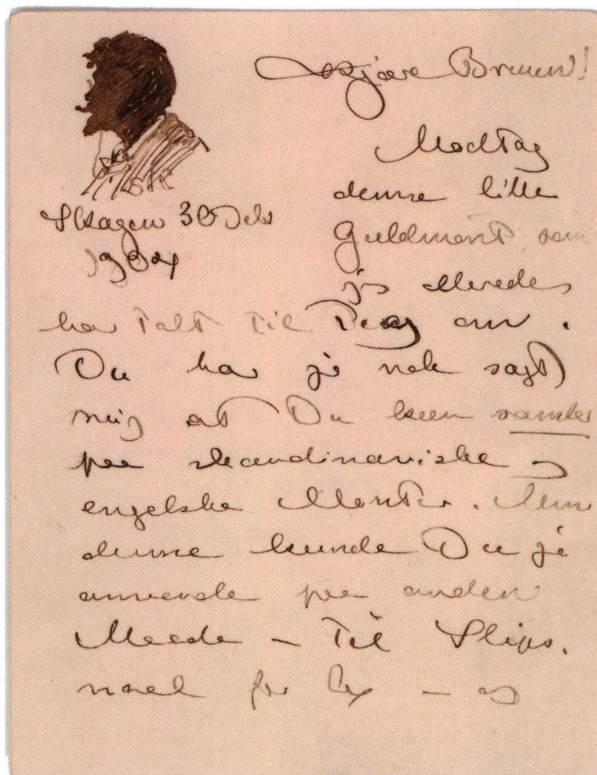 Kjære Bruun!
Modtag
denne lille
Guldmønt, som
jeg allerede
Skagen 30 Debr
1904
har talt til Deg om.
Du har jo nok sagt
mig at Du kun samler
paa skandinaviske og
engelske Mønter. Men
denne kunde Du jo
anvende paa anden
Maade – til Slips.
naal for Ex – og